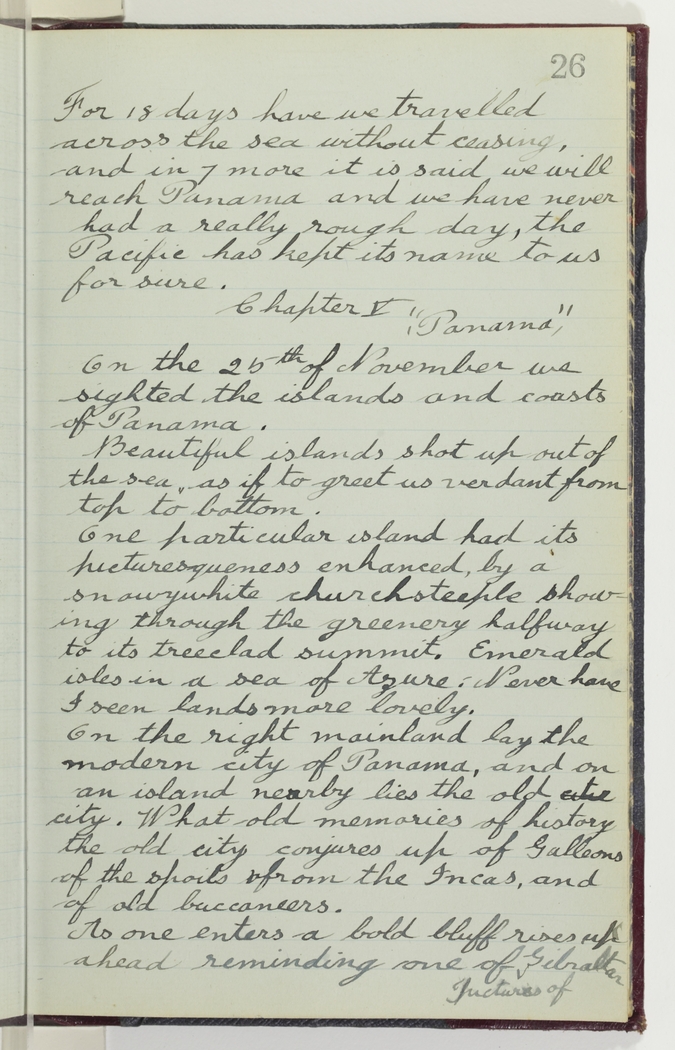 26
For 18 days have we travelled
across the sea without ceasing,
and in 7 more it is said we will
reach Panama and we have never
had a really rough day, the
Pacific has kept its name to us
for sure.
Chapter V "Panama",
On the 25th of November we
sighted the islands and coasts
of Panama.
Beautiful islands shot up out of
the sea, as if to greet us verdant from
top to bottom.
One particular island had its
picturesqueness enhanced, by a
snowywhite churchsteeple show-
ing through the greenery halfway
to its treeclad summit. Emerald
isles in a sea of Azure. Never have
I seen lands more lovely.
On the right mainland lay the
modern city of Panama, and on
an island nearby lies the old
city. What old memories of history
the old city conjures up of Galleons
of the spoils from the Incas, and
of old buccaneers.
As one enters a bold bluff rises up
ahead reminding one of Gibraltar
Pictures of